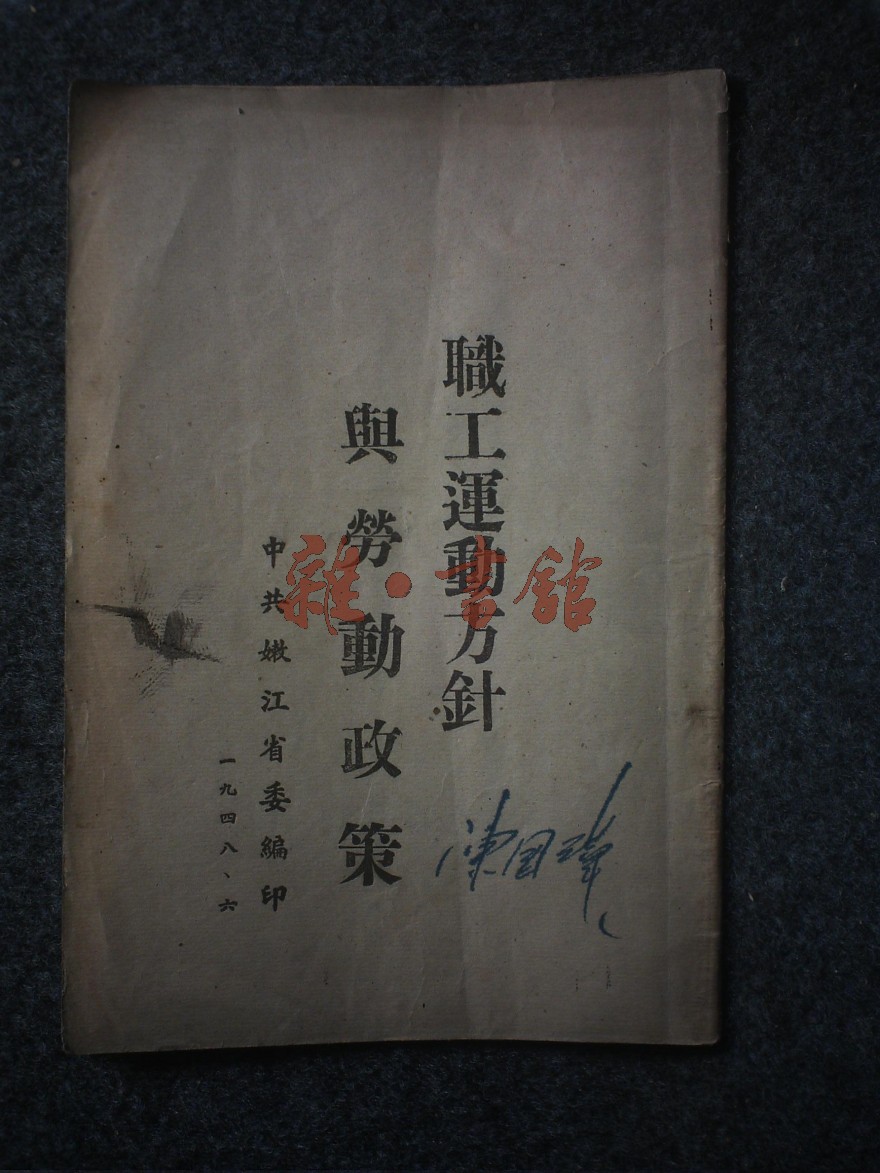 職工運動方針
與勞動政策
中共嫩江省委編印
一九四八、六
陳國璋
雜·書館